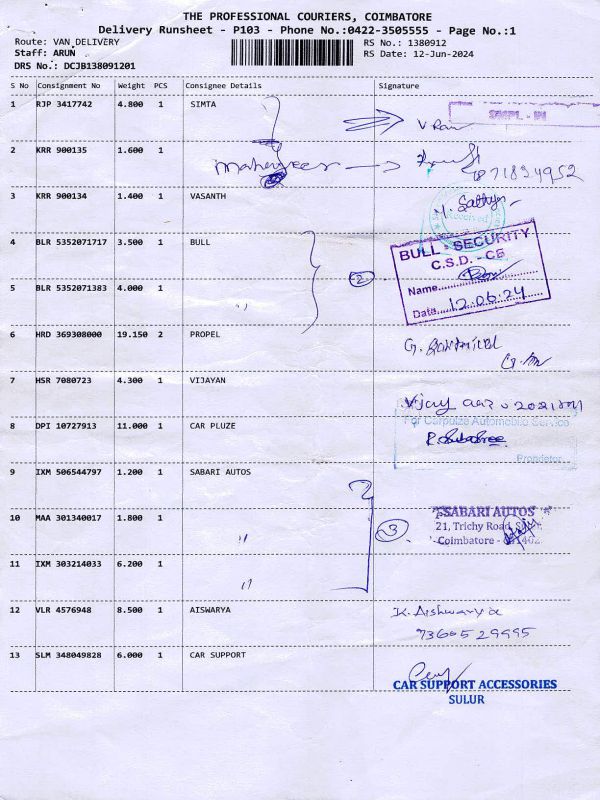 THE PROFESSIONAL COURIERS, COIMBATORE
Delivery Runsheet - P103 - Phone No.:0422-3505555 - Page No.:1
Route: VAN DELIVERY
RS No.: 1380912
Staff: ARUN
RS Date: 12-Jun-2024
DRS No.: DCJB138091201
S No Consignment No Weight PCS Consignee Details Signature
1 RJP 3417742 4.800 1 SIMTA
V Ram
2 KRR 900135 1.600 1
3 KRR 900134 1.400 1 VASANTH
M. Sathya
Received
4 BLR 5352071717 3.500 1 BULL
BULL - SECURITY
C.S.D. - CB
2
Name
5 BLR 5352071383 4.000 1 "
Date 12.06.24
6 HRD 369308000 19.150 2 PROPEL
7 HSR 7080723 4.300 1 VIJAYAN
Vijay
8 DPI 10727913 11.000 1 CAR PLUZE
For Carpulze Automobile Service
Proprietor
9 IXM 506544797 1.200 1 SABARI AUTOS
10 MAA 301340017 1.800 1 "
3
SABARI AUTOS
21, Trichy Road,
Coimbatore -
11 IXM 303214033 6.200 1 "
12 VLR 4576948 8.500 1 AISWARYA
K. Aishwarya
73605 29995
13 SLM 348049828 6.000 1 CAR SUPPORT
CAR SUPPORT ACCESSORIES
SULUR